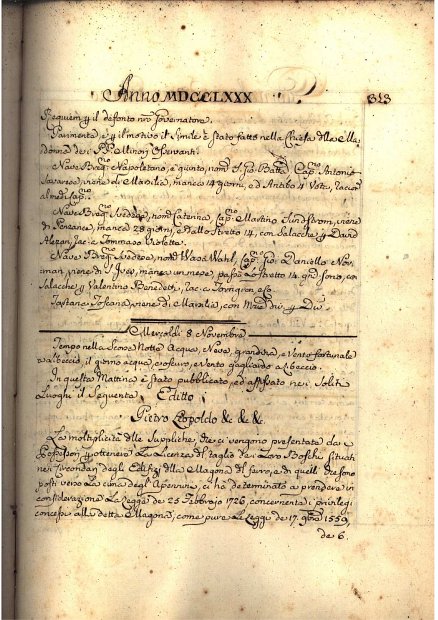 Anno MDCCLXXX 313
Requiem p il defonto nro Governatore.
Parimente, e p il motivo il simile è stato fatto nella Chiesa dlla Ma-
donna de i PP. Minori Osservanti.
Nave Breq.º Napoletano, è giunto, nom.º S. Gio: Batta Cap.no Antonio
viene di Marsilia, manca 14 giorni, e d'Antibo 4 Vote,
al med.º Cap.no
Nave Breq.º Svedese, nom.º Caterina, Cap.no Martino Lindstrom, viene
di Penzance, manca 28 giorni, e dallo Stretto 14, con Salacche p David
Aleron, rac. e Tommaso Violetta.
Nave Breq.º Svedese, nom.º Wasa Wahl, Cap.no Gio: Daniello Nor-
man, viene di S. Ives, manca un mese, passò Lo Stretto 14 gni sono, con
Salacche p Valentino Benedetti, rac. e
Tartana Toscana, viene di Marsilia, con Mrie Div. p Div.
Mercoldì 8 Novembre
Tempo nella Scorsa Notte Acqua, Neve, grandine, e Vento fortunale
a Libeccio, il giorno acqua, oscuro, e Vento gagliardo a Libeccio.
In questa Mattina è stato pubblicato, ed affissato nei Soliti
Luoghi il Seguente Editto
Pietro Leopoldo &c &c &c.
La moltiplicità dlle Suppliche, che ci vengono presentate da i
Possessori p ottenere La Licenza di taglio de i Loro Boschi situati
nei circondari degl' Edifizi dlla Magona dl ferro, e di quelli che sono
posti verso La cima degl' Apennini, ci ha determinato a prendere in
considerazione La Legge de 25 Febbrajo 1726, concernente i privilegj
concessi alla detta Magona, come pure Le Legge de 17. 9bre 1559,
de 6.